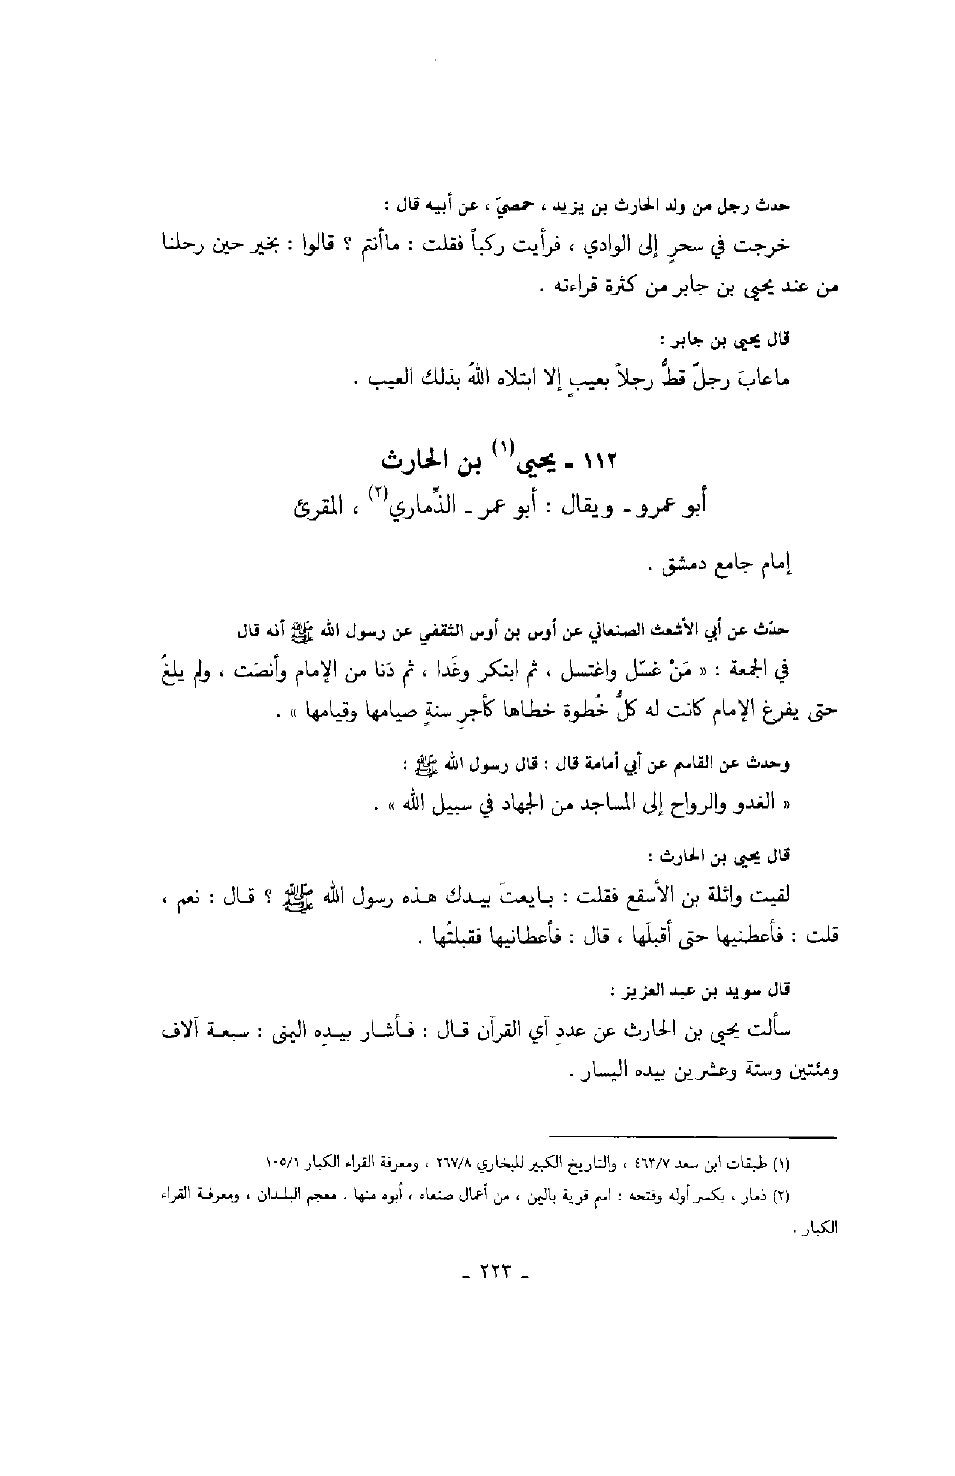 حدث رجل من ولد الحارث بن يزيد ، حمصيّ ، عن أبيه قال :
خرجت في سحرٍ إلى الوادي ، فرأيت ركباً فقلت : ماأنتم ؟ قالوا : بخير حين رحلنا
من عند يحيى بن جابر من كثرة قراءته .
قال يحيى بن جابر :
ماعابَ رجلٌ قطُّ رجلاً بعيبٍ إلا ابتلاه اللهُ بذلك العيب .
١١٢ ـ يحيى(١) بن الحارث
أبو عمرو ـ ويقال : أبو عمر ـ الذِّماري(٢) ، المقرئ
إمام جامع دمشق .
حدّث عن أبي الأشعث الصنعاني عن أوس بن أوس الثقفي عن رسول الله ﷺ أنه قال
في الجمعة : « مَنْ غسّل واغتسل ، ثم ابتكر وغَدا ، ثم دَنا من الإمام وأنصَت ، ولم يلغُ
حتى يفرغ الإمام كانت له كلُّ خُطوة خطاها كأجرِ سنةٍ صيامها وقيامها » .
وحدث عن القاسم عن أبي أمامة قال : قال رسول الله ﷺ :
« الغدو والرواح إلى المساجد من الجهاد في سبيل الله » .
قال يحيى بن الحارث :
لقيت واثلة بن الأسقع فقلت : بايعتَ بيدك هذه رسول الله ﷺ ؟ قال : نعم ،
قلت : فأعطنيها حتى أقبلَها ، قال : فأعطانيها فقبلتُها .
قال سويد بن عبد العزيز :
سألت يحيى بن الحارث عن عددِ آي القرآن قال : فأشار بيدِه اليمنى : سبعة آلاف
ومئتين وستة وعشرين بيده اليسار .
(١) طبقات ابن سعد ٤٦٣/٧ ، والتاريخ الكبير للبخاري ٢٦٧/٨ ، ومعرفة القراء الكبار ١٠٥/١
(٢) ذمار ، بكسر أوله وفتحه : اسم قرية باليمن ، من أعمال صنعاء ، أبوه منها . معجم البلدان ، ومعرفة القراء
الكبار .
ـ ٢٢٣ ـ